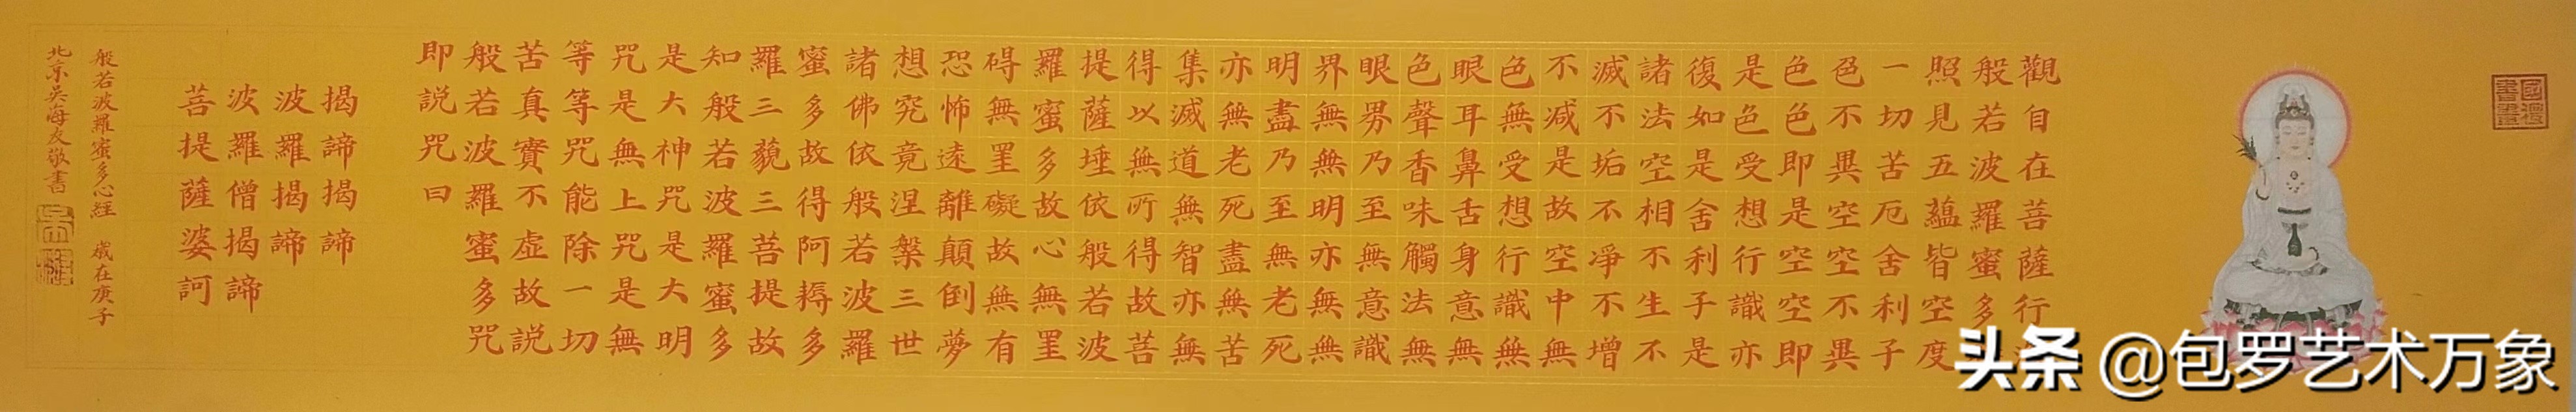 觀自在菩薩行
般若波羅蜜多
照見五蘊皆空度
一切苦厄舍利子
色不異空空不異
色色即是空空即
是色受想行識亦
復如是舍利子是
諸法空相不生不
滅不垢不淨不增
不減是故空中無
色無受想行識無
眼耳鼻舌身意無
色聲香味觸法無
眼界乃至無意識
界無無明亦無無
明盡乃至無老死
亦無老死盡無苦
集滅道無智亦無
得以無所得故菩
提薩埵依般若波
羅蜜多故心無罣
碍無罣礙故無有
恐怖遠離顛倒夢
想究竟涅槃三世
諸佛依般若波羅
蜜多故得阿耨多
羅三藐三菩提故
知般若波羅蜜多
是大神咒是大明
咒是無上咒是無
等等咒能除一切
苦真實不虛故説
般若波羅蜜多咒
即説咒曰
揭諦揭諦
波羅揭諦
波羅僧揭諦
菩提薩婆訶
般若波羅蜜多心經 歲在庚子
北京吳海友敬書
头条 @包罗艺术万象